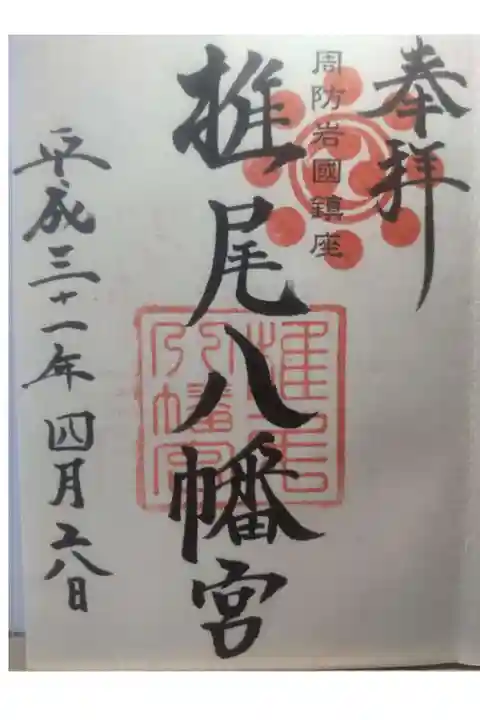 奉拝
周防岩國鎮座
椎尾八幡宮
椎尾
八幡宮
平成三十一年四月二八日